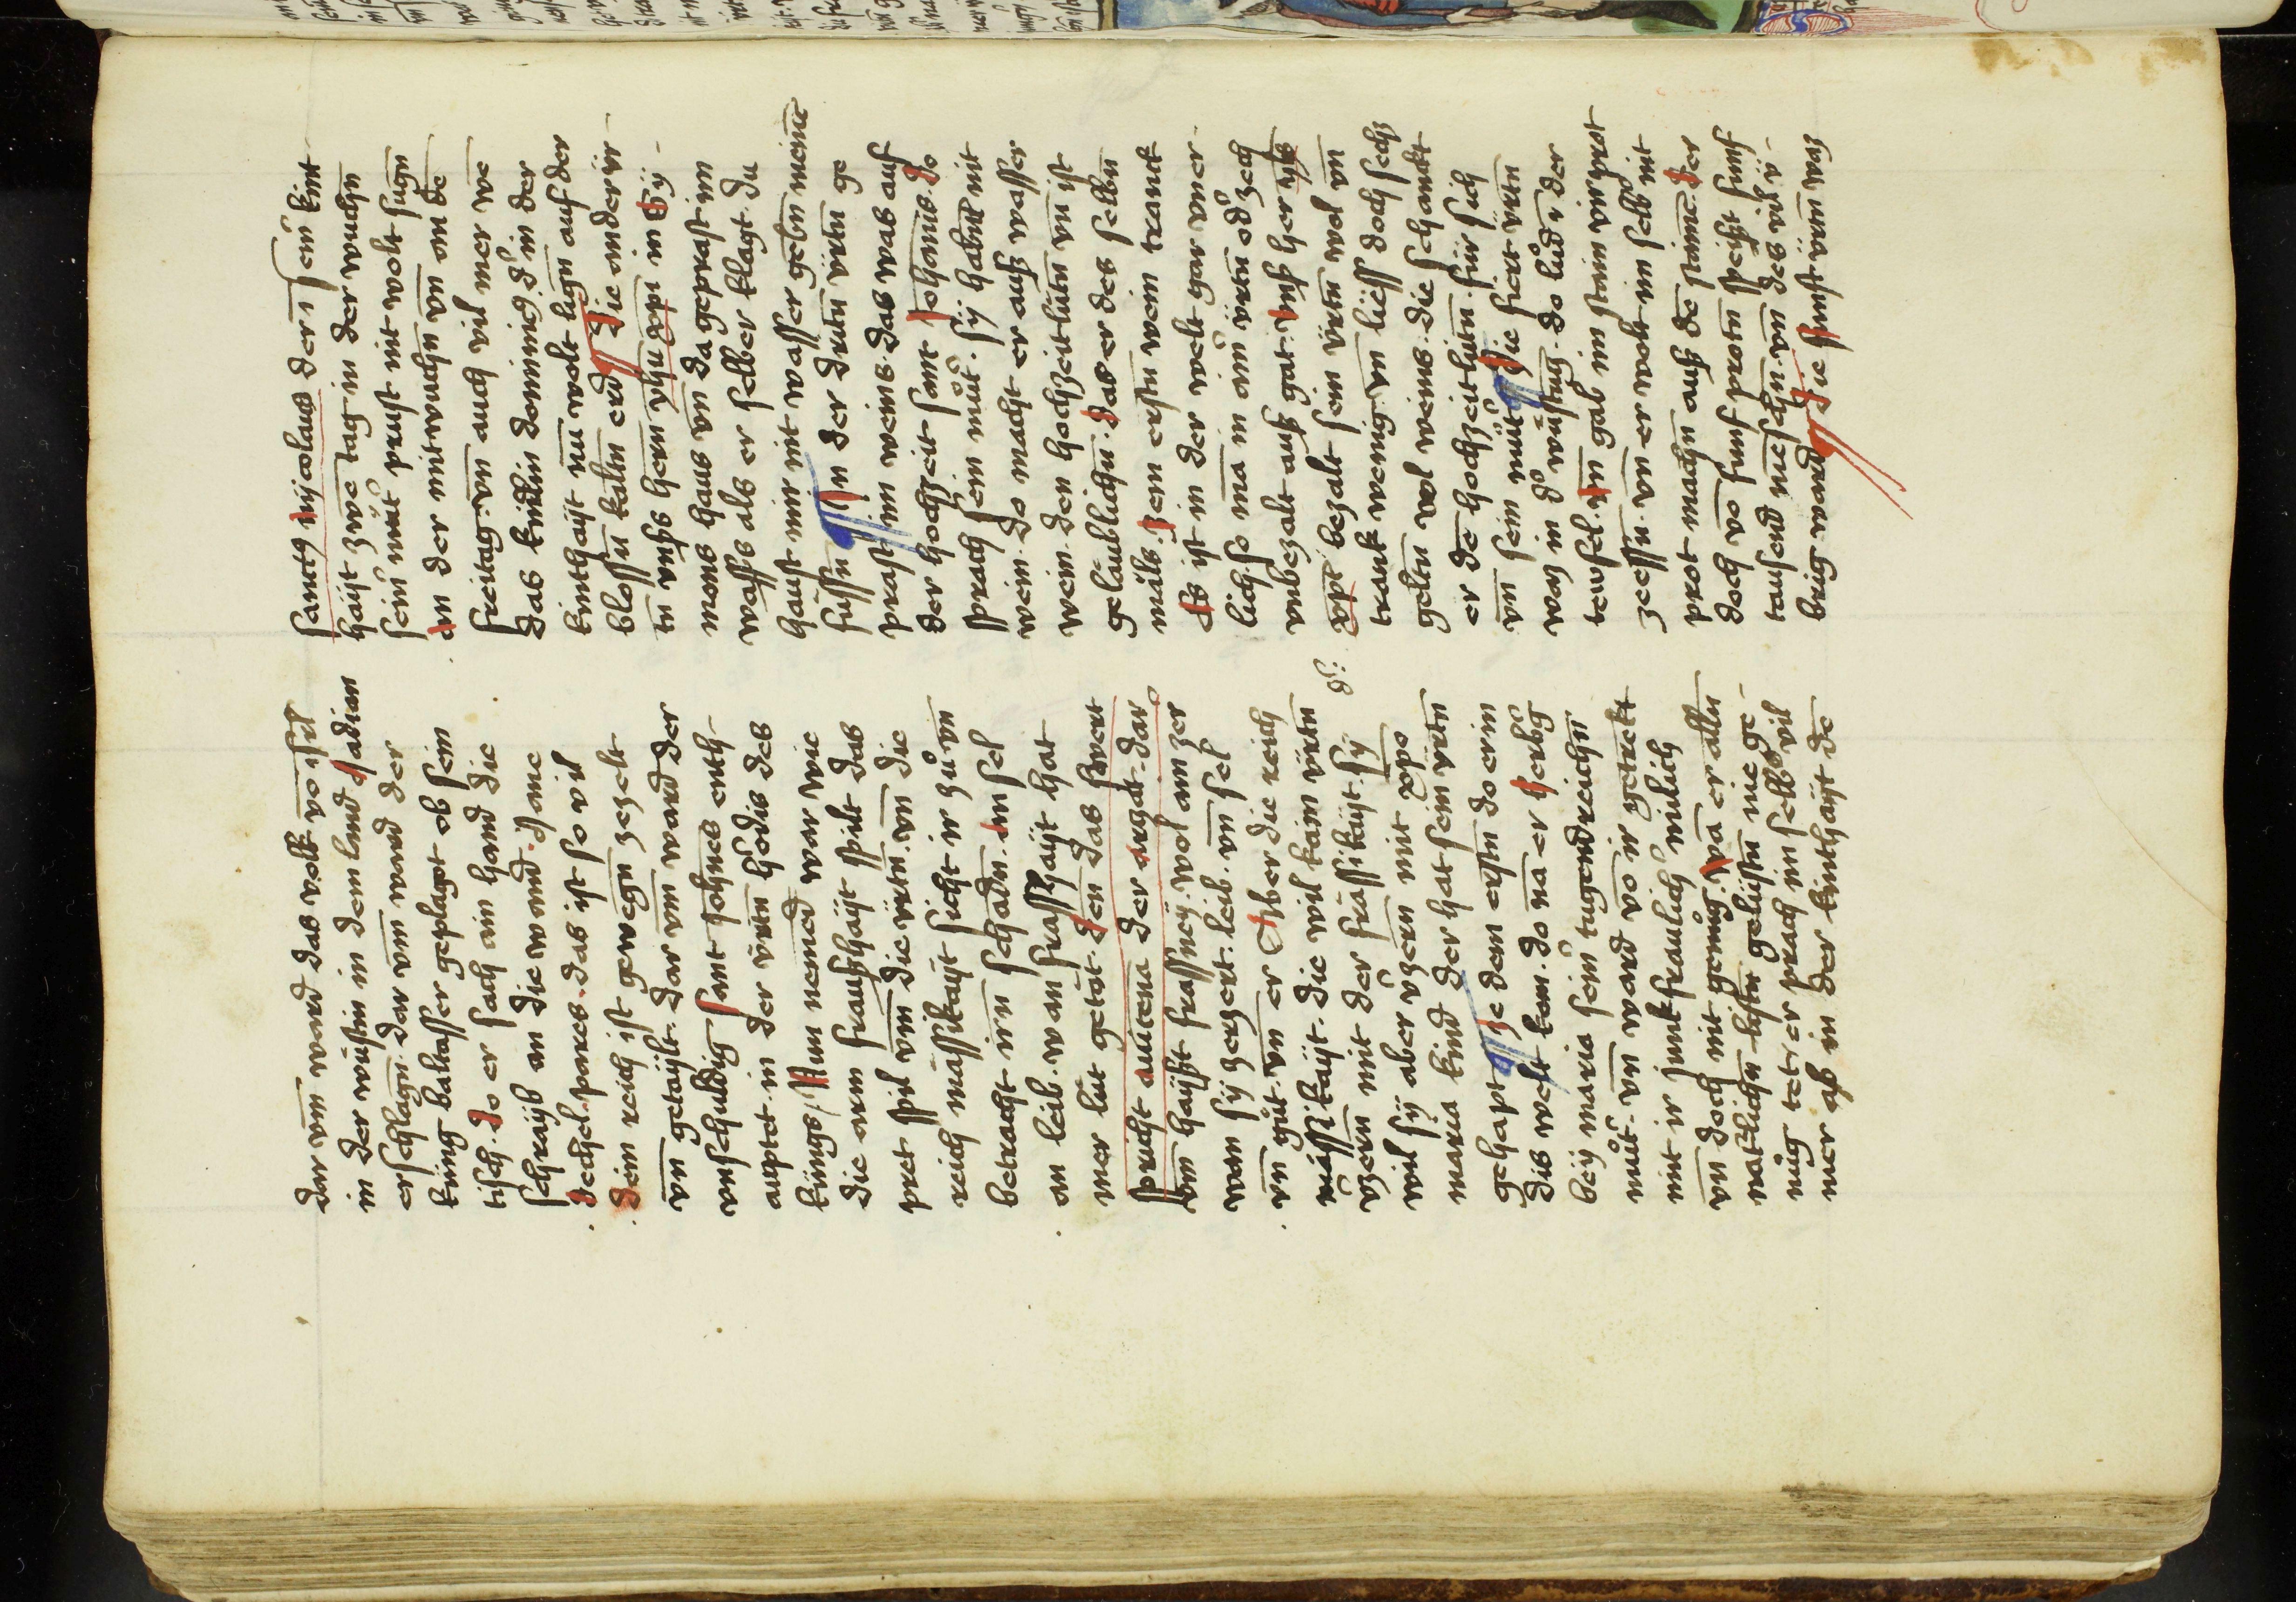 dar vm̄ ward das volk vō ißꝛl
in der wüstin in dem land Madian
erschlagn̄. dar vm̄ ward der
küng baltasser geplagt ob sein
tisch. do er sach ain hand die
schrayb an die wand. Mane
techel. pares. das ist so vil
dein reich ist gewegn̄ zezelt
vn̄ getaÿlt. dar vm̄ ward der
vnschuldig sant Johnes enth-
auptet in der ürtn̄ Hodis des
küngs / Nun nemend war wie
die arm fraußhaÿt spilt das
pret spil vm̄ die ürtn̄. vn̄ die
reich mässikaÿt sicht ir zů vn̄
betracht irn̄ schadn̄. an sel
an leib. wan frasshaÿt hat
mer lüt getöt. den das swert
spricht auicena der arczat. dar
vm̄ haÿßt frassneÿ. wol am zer
wan sÿ zerzert. leib. vn̄ sel
vn̄ gůt. vn̄ er Aber die reich
mässikaÿt. die wil kain ürtn̄
ůzern mit der frässikaÿt. sÿ
wil sÿ aber ůzern mit xp̄o
maria kind der hat sein ürtn̄
gehapt ze dem erstn̄ do er in
dis welt kam. do na er Herbg̊
beÿ maria sein̊ tugendreichn̄
můt. vn̄ ward vō ir getrekt
mit ir junkfraulich̊ milich
vn̄ doch nit genůg. wā er alln̄
natlichn̄ listn̄ gelüstn̄ nie ge-
nůg tet / er prach im selb̊ vil
mer ab in der kinthaÿt dē
sanctꝯ nÿcolaus der ī sein̊ kint
haÿt zwē tag in der wuchn̄
sein̊ můt prust nit wolt sugn̄
am der mitwuchn̄ vn̄ an dē
freitag. vn̄ auch vil mer wē
das kindlin dominicꝯ. d̊ in der
kinthaÿt nu̅ wolt lign̄ auf der
blossn̄ kaltn̄ erd Die ander ür-
tn̄ vnßs hern̄ yhū xp̄i in Sÿ-
mons haus vn̄ da geprast im
wassßs als er selber klagt. du
haust mir nit wasser gebn̄ meinē
füssn̄ In der dritn̄ ürtn̄ ge
prast im weins. das was auf
der hochzeit sant Johanns. do
sprach sein můt̊. sÿ habnt nit
wein. do macht er auß wasser
wein. den hochzeitlütn̄ vn̄ ist
gelaublichn̄. das er des selbn̄
mäls. zem erstn̄ wein tranck
Es ist in der welt gar vner-
lich. so mā in ain̊ ürtn̄ od̊ zech
vnbezalt auß gat. vnß her yhs
xp̄c bezalt sein ürtn̄ wol vn̄
trank wenig. vn̄ liess doch sechß
geltn̄ vol weins. die schanckt
er dē hochzeitlütn̄. für sich
vn̄ sein můt̊ Die fiert ürtn̄
waz in d̊ wüstnꝫ. do lůd ı̄ der
teufel. vn̄ gab im stain vir prot
ze essn̄. vn̄ er wolt im selb̊ nit
prot machn̄ auß dē stainē. der
doch vō funf protn̄ speißt funf
tausend mēschn̄. vn̄ des vil ü-
brig ward Die funft ürtn̄ waz